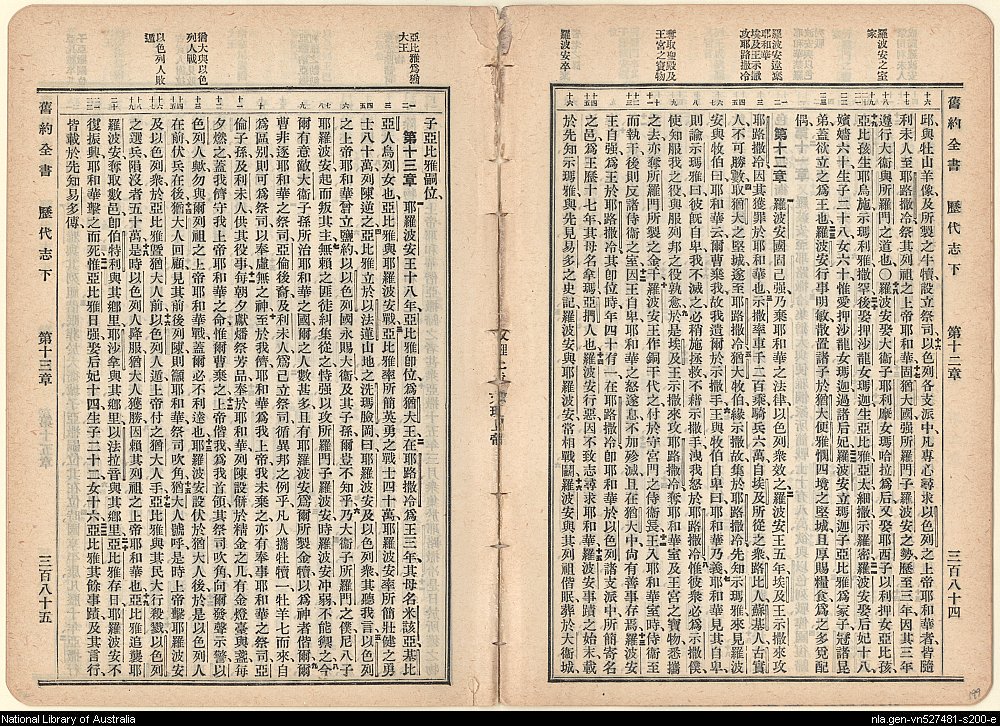 羅波安之室家
羅波安遠棄耶和華
埃及王示撒攻耶路撒冷
奪取聖殿及王宮之寶物
羅波安卒
舊約全書 歷代志下 第十二章 三百八十四
邱與牡山羊像及所製之牛犢設立祭司以色列各支派中凡專心尋求以色列之上帝耶和華者皆隨
利未人至耶路撒冷祭其列祖之上帝耶和華固猶大國强所羅門子羅波安之勢歷至三年因其三年
遵行大衛與所羅門之道也〇羅波安娶大衛子耶利摩女瑪哈拉爲后又娶耶西子以利押女亞比孩
亞比孩生耶烏施示瑪利雅撒罕後娶押沙龍女瑪迦生亞比雅亞太細撒示羅密羅波安娶后妃十八
嬪嬙六十生子二十八女六十惟愛押沙龍女瑪迦過諸后妃羅波安立瑪迦子亞比雅爲冢子冠諸昆
弟蓋欲立之爲王也羅波安行事明敏散置諸子於猶大便雅憫四境之堅城且厚賜糧食爲之多覓配
偶
第十二章 羅波安國固己强乃棄耶和華之法律以色列衆效之羅波安王五年埃及王示撒來攻
耶路撒冷因其獲罪於耶和華也示撒率車千二百乘騎兵六萬自埃及所從之衆路比人蘇基人古實
人不可勝數取猶大之堅城遂至耶路撒冷猶大牧伯緣示撒故集於耶路撒冷先知示瑪雅來見羅波
安與牧伯曰耶和華云爾曹棄我故我遺爾於示撒手王與牧伯自卑曰耶和華乃義耶和華見其自卑
則諭示瑪雅曰彼旣自卑我不滅之必稍施拯救不藉示撒手洩我怒於耶路撒冷惟彼衆必爲示撒僕
使知服我之役與服列邦之役孰愈於是埃及王示撒來攻耶路撒冷奪耶和華室及王宮之寶物悉攜
之去亦奪所羅門所製之金干羅波安王作銅干代之付於守宮門之侍衛長王入耶和華室時侍衛至
而執干後則反諸侍衛之室因王自卑耶和華之怒遂息不加殄滅且在猶大中尙有善事存焉羅波安
王自强爲王於耶路撒冷其卽位時年四十有一在耶路撒冷卽耶和華於以色列諸支派中所簡寄名
之邑爲王歷十七年其母名拿瑪亞捫人也羅波安行惡因不致志尋求耶和華羅波安事蹟之始末載
於先知示瑪雅與先見易多之史記羅波安與耶羅波安常相戰鬭羅波安與其列祖偕眠葬於大衛城
亞比雅爲猶大王
猶大與以色列人戰
以色列人敗遁
子亞比雅嗣位
第十三章 耶羅波安王十八年亞比雅卽位爲猶大王在耶路撒冷爲王三年其母名米該亞基比
亞人烏列女也亞比雅與耶羅波安戰亞比雅率所簡英勇之戰士四十萬耶羅波安率所簡壯健之勇
士八十萬列陳逆之亞比雅立於以法蓮山地之洗瑪臉岡曰耶羅波安及以色列衆其聽我言以色列
之上帝耶和華曾立鹽約以以色列國永賜大衛及其子孫爾豈不知乎乃大衛子所羅門之僕尼八子
耶羅波安起而叛其主無賴之匪徒糾集從之恃强以攻所羅門子羅波安時羅波安冲弱不能禦之今
爾有意敵大衛子孫所治耶和華之國爾之人數甚多且有耶羅波安爲爾所製金犢以爲神者偕爾爾
曹非逐耶和華之祭司亞倫後裔及利未人爲己立祭司循異邦之例乎凡人攜牡犢一牡羊七而來自
爲區别則可爲祭司以奉虛無之神至於我儕耶和華爲我上帝我未棄之亦有奉事耶和華之祭司亞
倫子孫及利未人供其役事每朝夕獻燔祭芳品奉於耶和華列陳設餅於精金之几有金燈臺與盞每
夕燃之蓋我儕守我上帝耶和華之命惟爾曹棄之上帝偕我爲我首領其祭司吹角向爾發聲示警以
色列人歟勿與爾列祖之上帝耶和華戰蓋爾必不利達也耶羅波安設伏於猶大人後於是以色列人
在前伏兵在後猶大人回顧見其前後列陳則籲耶和華祭司吹角猶大人號呼是時上帝擊耶羅波安
及以色列衆於亞比雅曁猶大人前以色列人遁上帝付之猶大人手亞比雅與其民大行殺戮以色列
之選兵隕沒者五十萬是時以色列人降服猶大人獲勝因賴其列祖之上帝耶和華也亞比雅追襲耶
羅波安奪取數邑卽伯特利與其鄉里耶沙拿與其鄉里以法拉音與其鄉里亞比雅存日耶羅波安不
復振興耶和華擊之而死惟亞比雅日强娶后妃十四生子二十二女十六亞比雅其餘事蹟及其言行
皆載於先知易多傳
舊約全書 歷代志下 第十三章 三百八十五
199
National Library of Australia
nla.gen-vn527481-s200-e